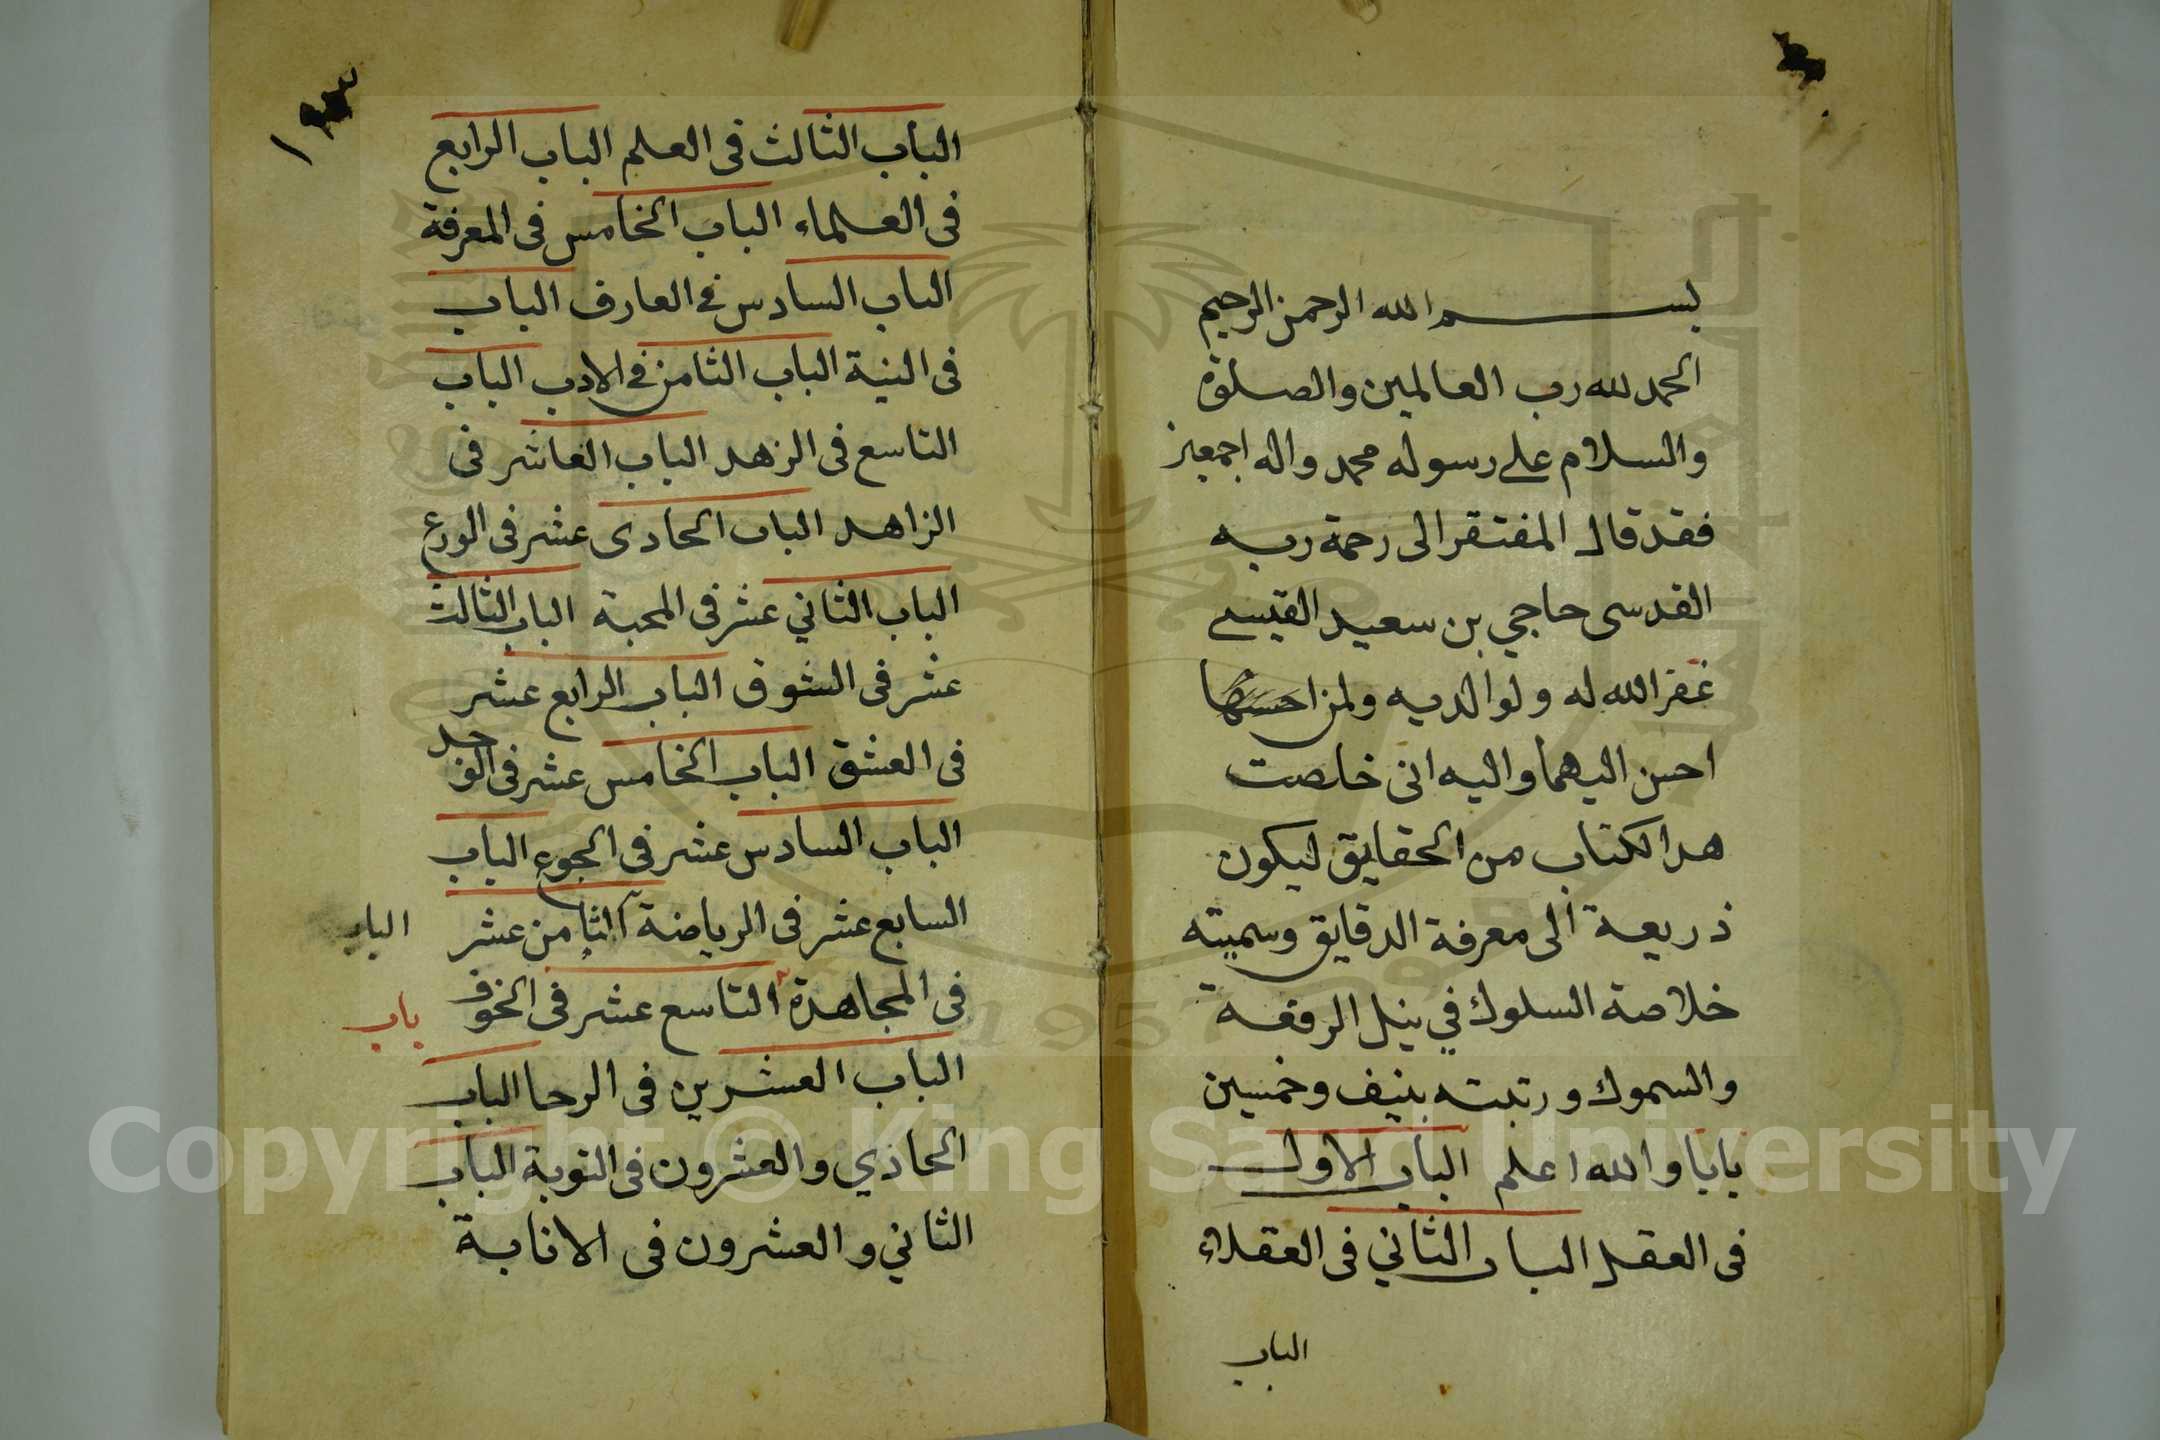 بسم الله الرحمن الرحيم
الحمد لله رب العالمين والصلوة
والسلام على رسوله محمد واله اجمعين
فقد قال المفتقر الى رحمة ربه
القدسى حاجي بن سعيد القيسي
غفر الله له ولوالديه ولمن
احسن اليهما واليه انى خلصت
هدا لكتاب من الحقايق ليكون
ذريعة الى معرفة الدقايق وسميته
خلاصة السلوك في نيل الرفعة
والسموك ورتبته بنيف وخمسين
بابا والله اعلم الباب الاول
فى العقل الباب الثاني فى العقلاء
الباب
الباب الثالث فى العلم الباب الرابع
فى العلماء الباب الخامس فى المعرفة
الباب السادس في العارف الباب
فى النية الباب الثامن في الادب الباب
التاسع فى الزهد الباب العاشر فى
الزاهد الباب الحادى عشر فى الورع
الباب الثاني عشر فى المحبة الباب الثالث
عشر فى الشوق الباب الرابع عشر
فى العشق الباب الخامس عشر فى الوجد
الباب السادس عشر فى الجوع الباب
السابع عشر فى الرياضة الثامن عشر
الباب
فى المجاهدة التاسع عشر فى الخوف
باب
الباب العشرين فى الرجا الباب
الحاذي والعشرون فى التوبة الباب
الثاني والعشرون فى الانابة
Copyright © King Saud University
1957